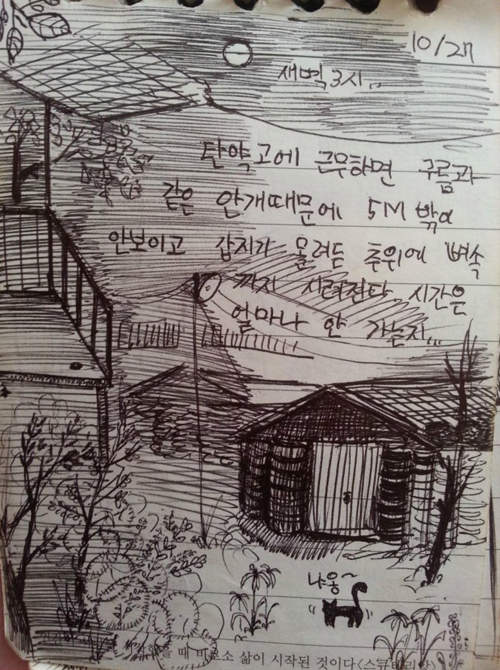 10/27
새벽 3시..
탄약고에 근무하면 구름과
같은 안개때문에 5M 밖에
안보이고 갑자기 몰려든 추위에 뼈속
까지 시려진다. 시간은
얼마나 안 가는지...
나옹~
때 비로소 삶이 시작된 것이다